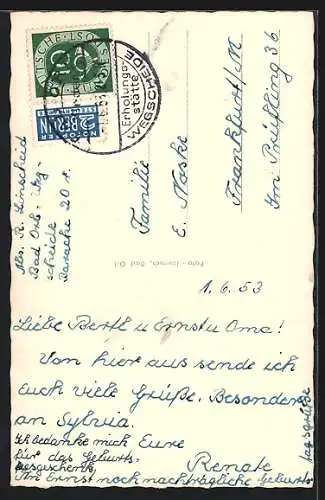 Erholungs-
stätte
WEGSCHEIDE
NOTOPFER
2 BERLIN
STEUERMARKE
Abs. R. Linscheid
Bad Orb-Weg-
scheide
Baracke 20
Familie
E. Noske
Frankfurt/M
Im Prüfling 36
Foto - Jaensch, Bad Orb
1.6.53
Liebe Bertl u Ernst u Oma!
Von hier aus sende ich
euch viele Grüße. Besonders
an Sylvia.
Ich bedanke mich Eure
für das Geburts- Renate
tagsgeschenk.
Ihr Ernst noch nachträgliche Geburts-
tagsgrüße